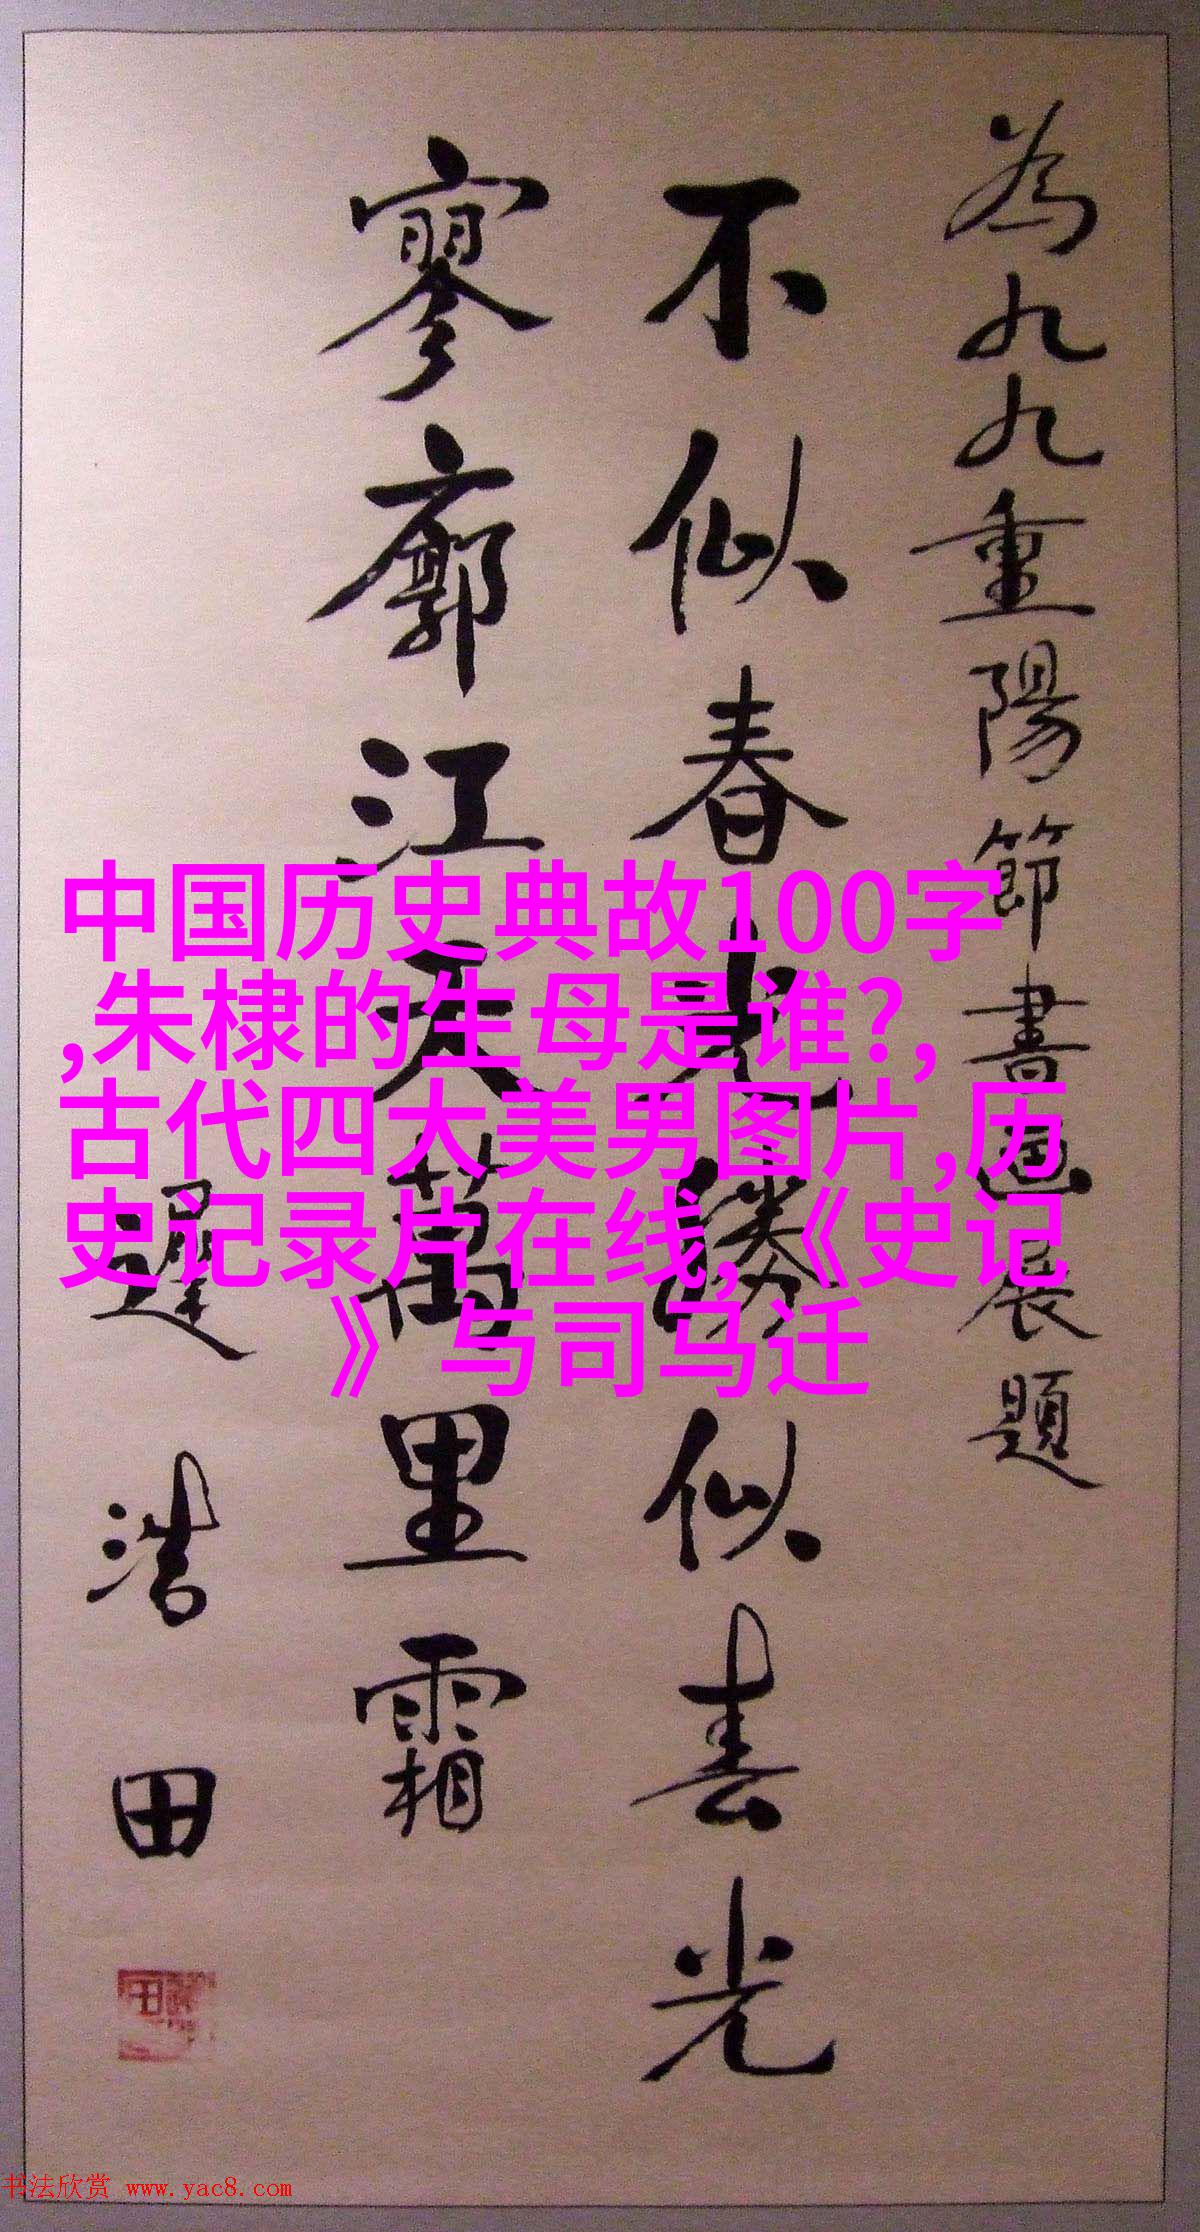 為九九重陽節書畫展題
不似春光勝似春光
寥廓江天萬里霜
遲浩田
中国历史典故100字
,朱棣的生母是谁?,
古代四大美男图片,历
史记录片在线,《史记
》与司马迁
书法欣赏 www.yac8.com